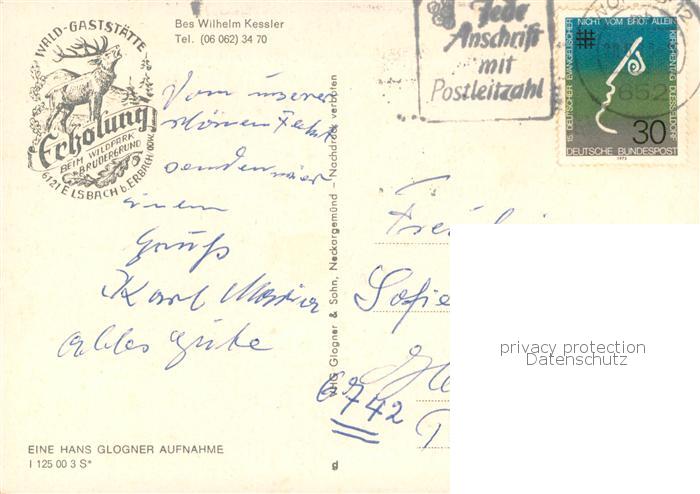 WALD-GASTSTÄTTE
Erholung
BEIM WILDPARK
BRUDERGRUND
6121 ELSBACH b. ERBACH
Bes Wilhelm Kessler
Tel. (06 062) 34 70
Jede
Anschrift
mit
Postleitzahl
15. DEUTSCHER EVANGELISCHER KIRCHENTAG DÜSSELDORF
NICHT VOM BROT ALLEIN
30
DEUTSCHE BUNDESPOST
1973
652
Vom unserer
schönen Fahrt
senden wir
einen
Gruß
Karl Maria
alles gute
HG Glogner & Sohn, Neckargemünd – Nachdruck verboten
Sofie
6742
privacy protection
Datenschutz
EINE HANS GLOGNER AUFNAHME
I 125 00 3 S*
g